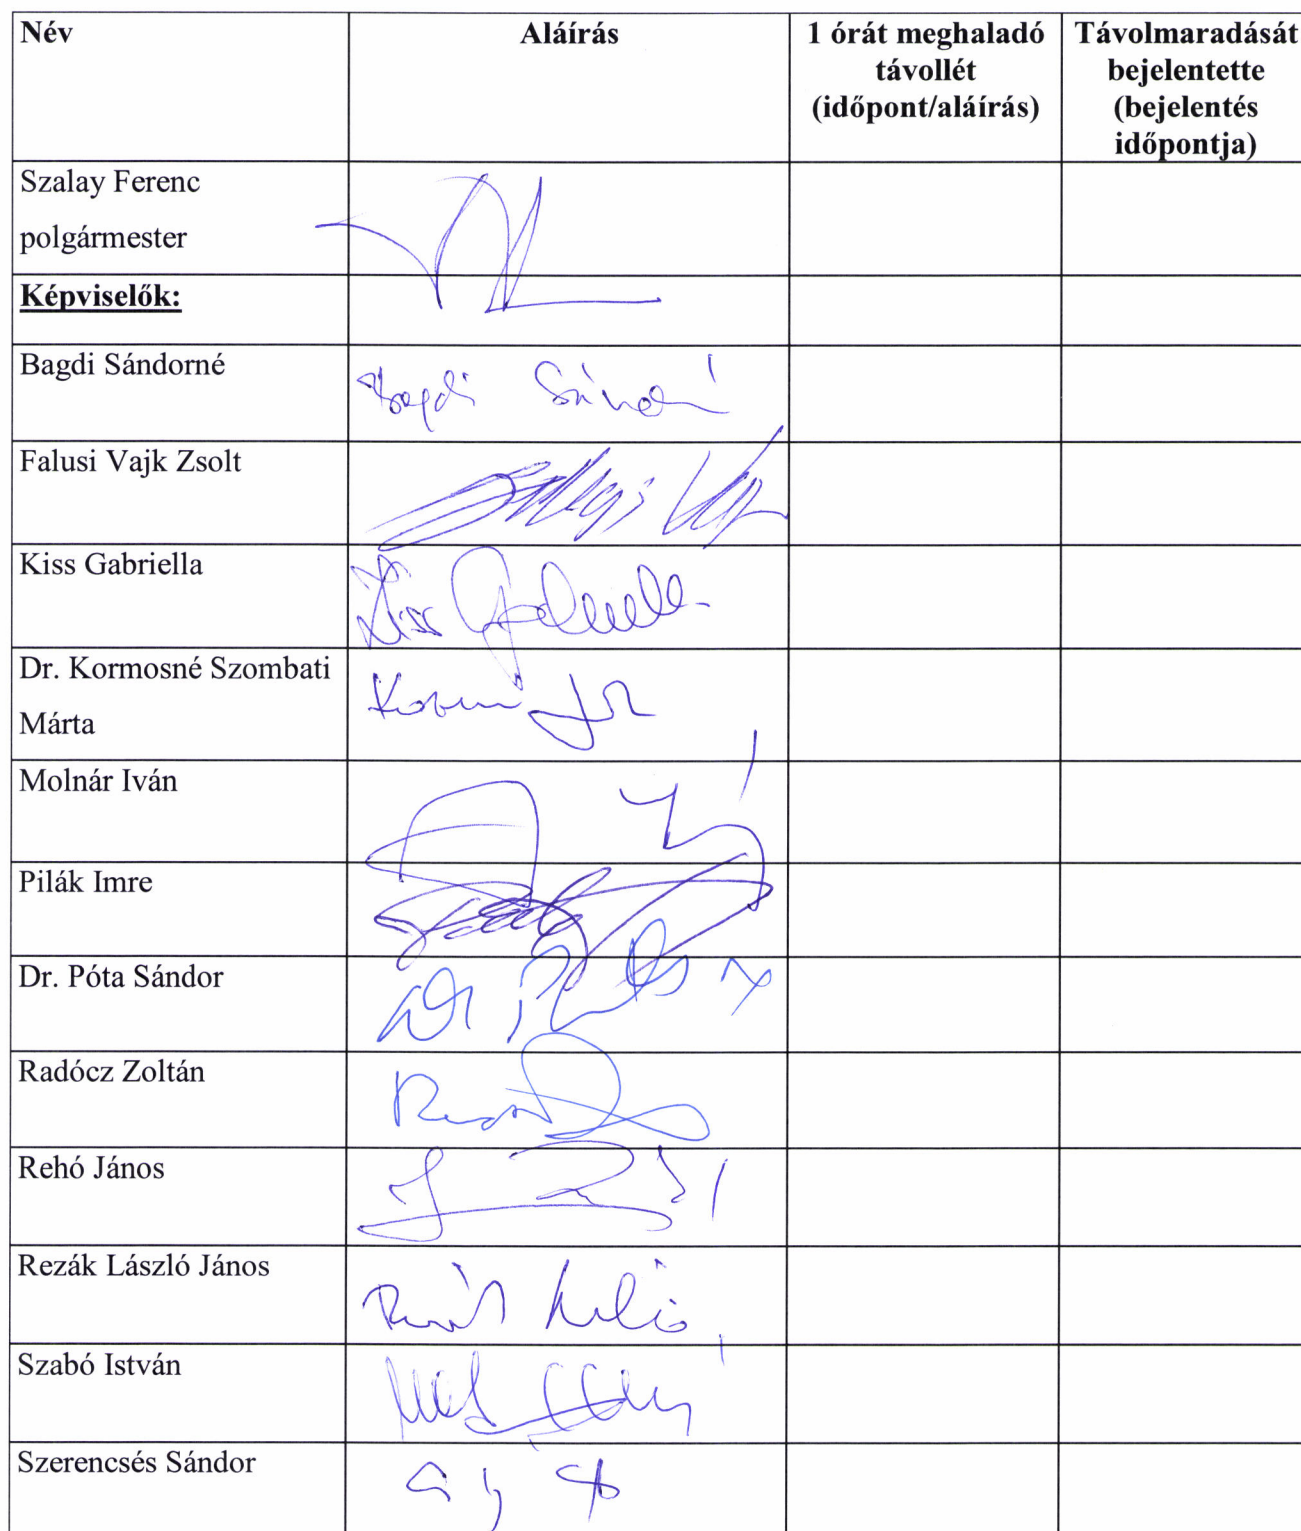 Név
Aláírás
1 órát meghaladó
távollét
(időpont/aláírás)
Távolmaradását
bejelentette
(bejelentés
időpontja)
Szalay Ferenc
polgármester
Képviselők:
Bagdi Sándorné
Bagdi Sándorné
Falusi Vajk Zsolt
Kiss Gabriella
Kiss Gabriella
Dr. Kormosné Szombati
Márta
Molnár Iván
Pilák Imre
Dr. Póta Sándor
Radócz Zoltán
Rehó János
Rezák László János
Szabó István
Szerencsés Sándor